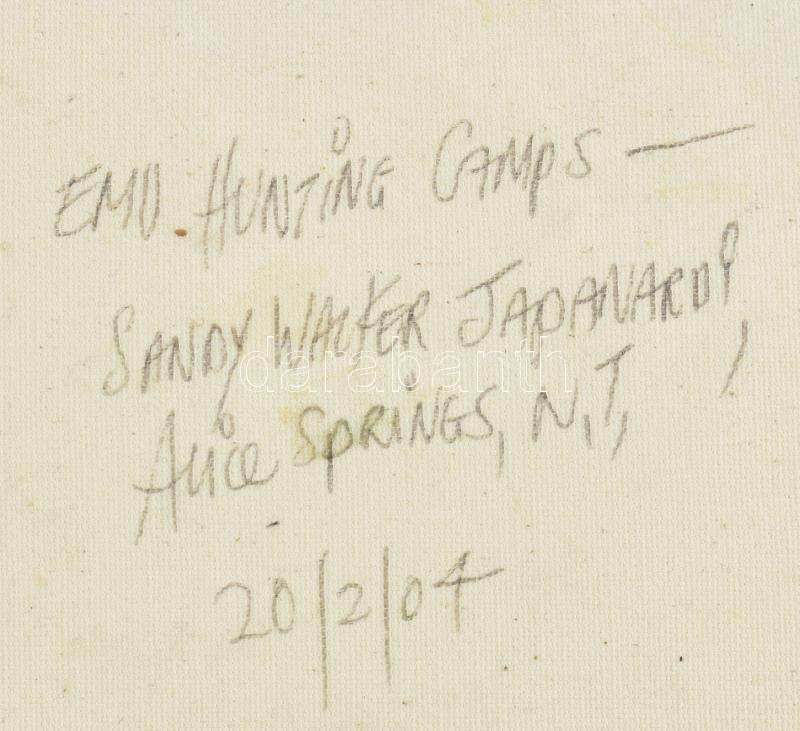 EMU HUNTING CAMPS —
SANDY WALKER JAPANARDI,
ALICE SPRINGS, N.T,
20/2/04
darabanth